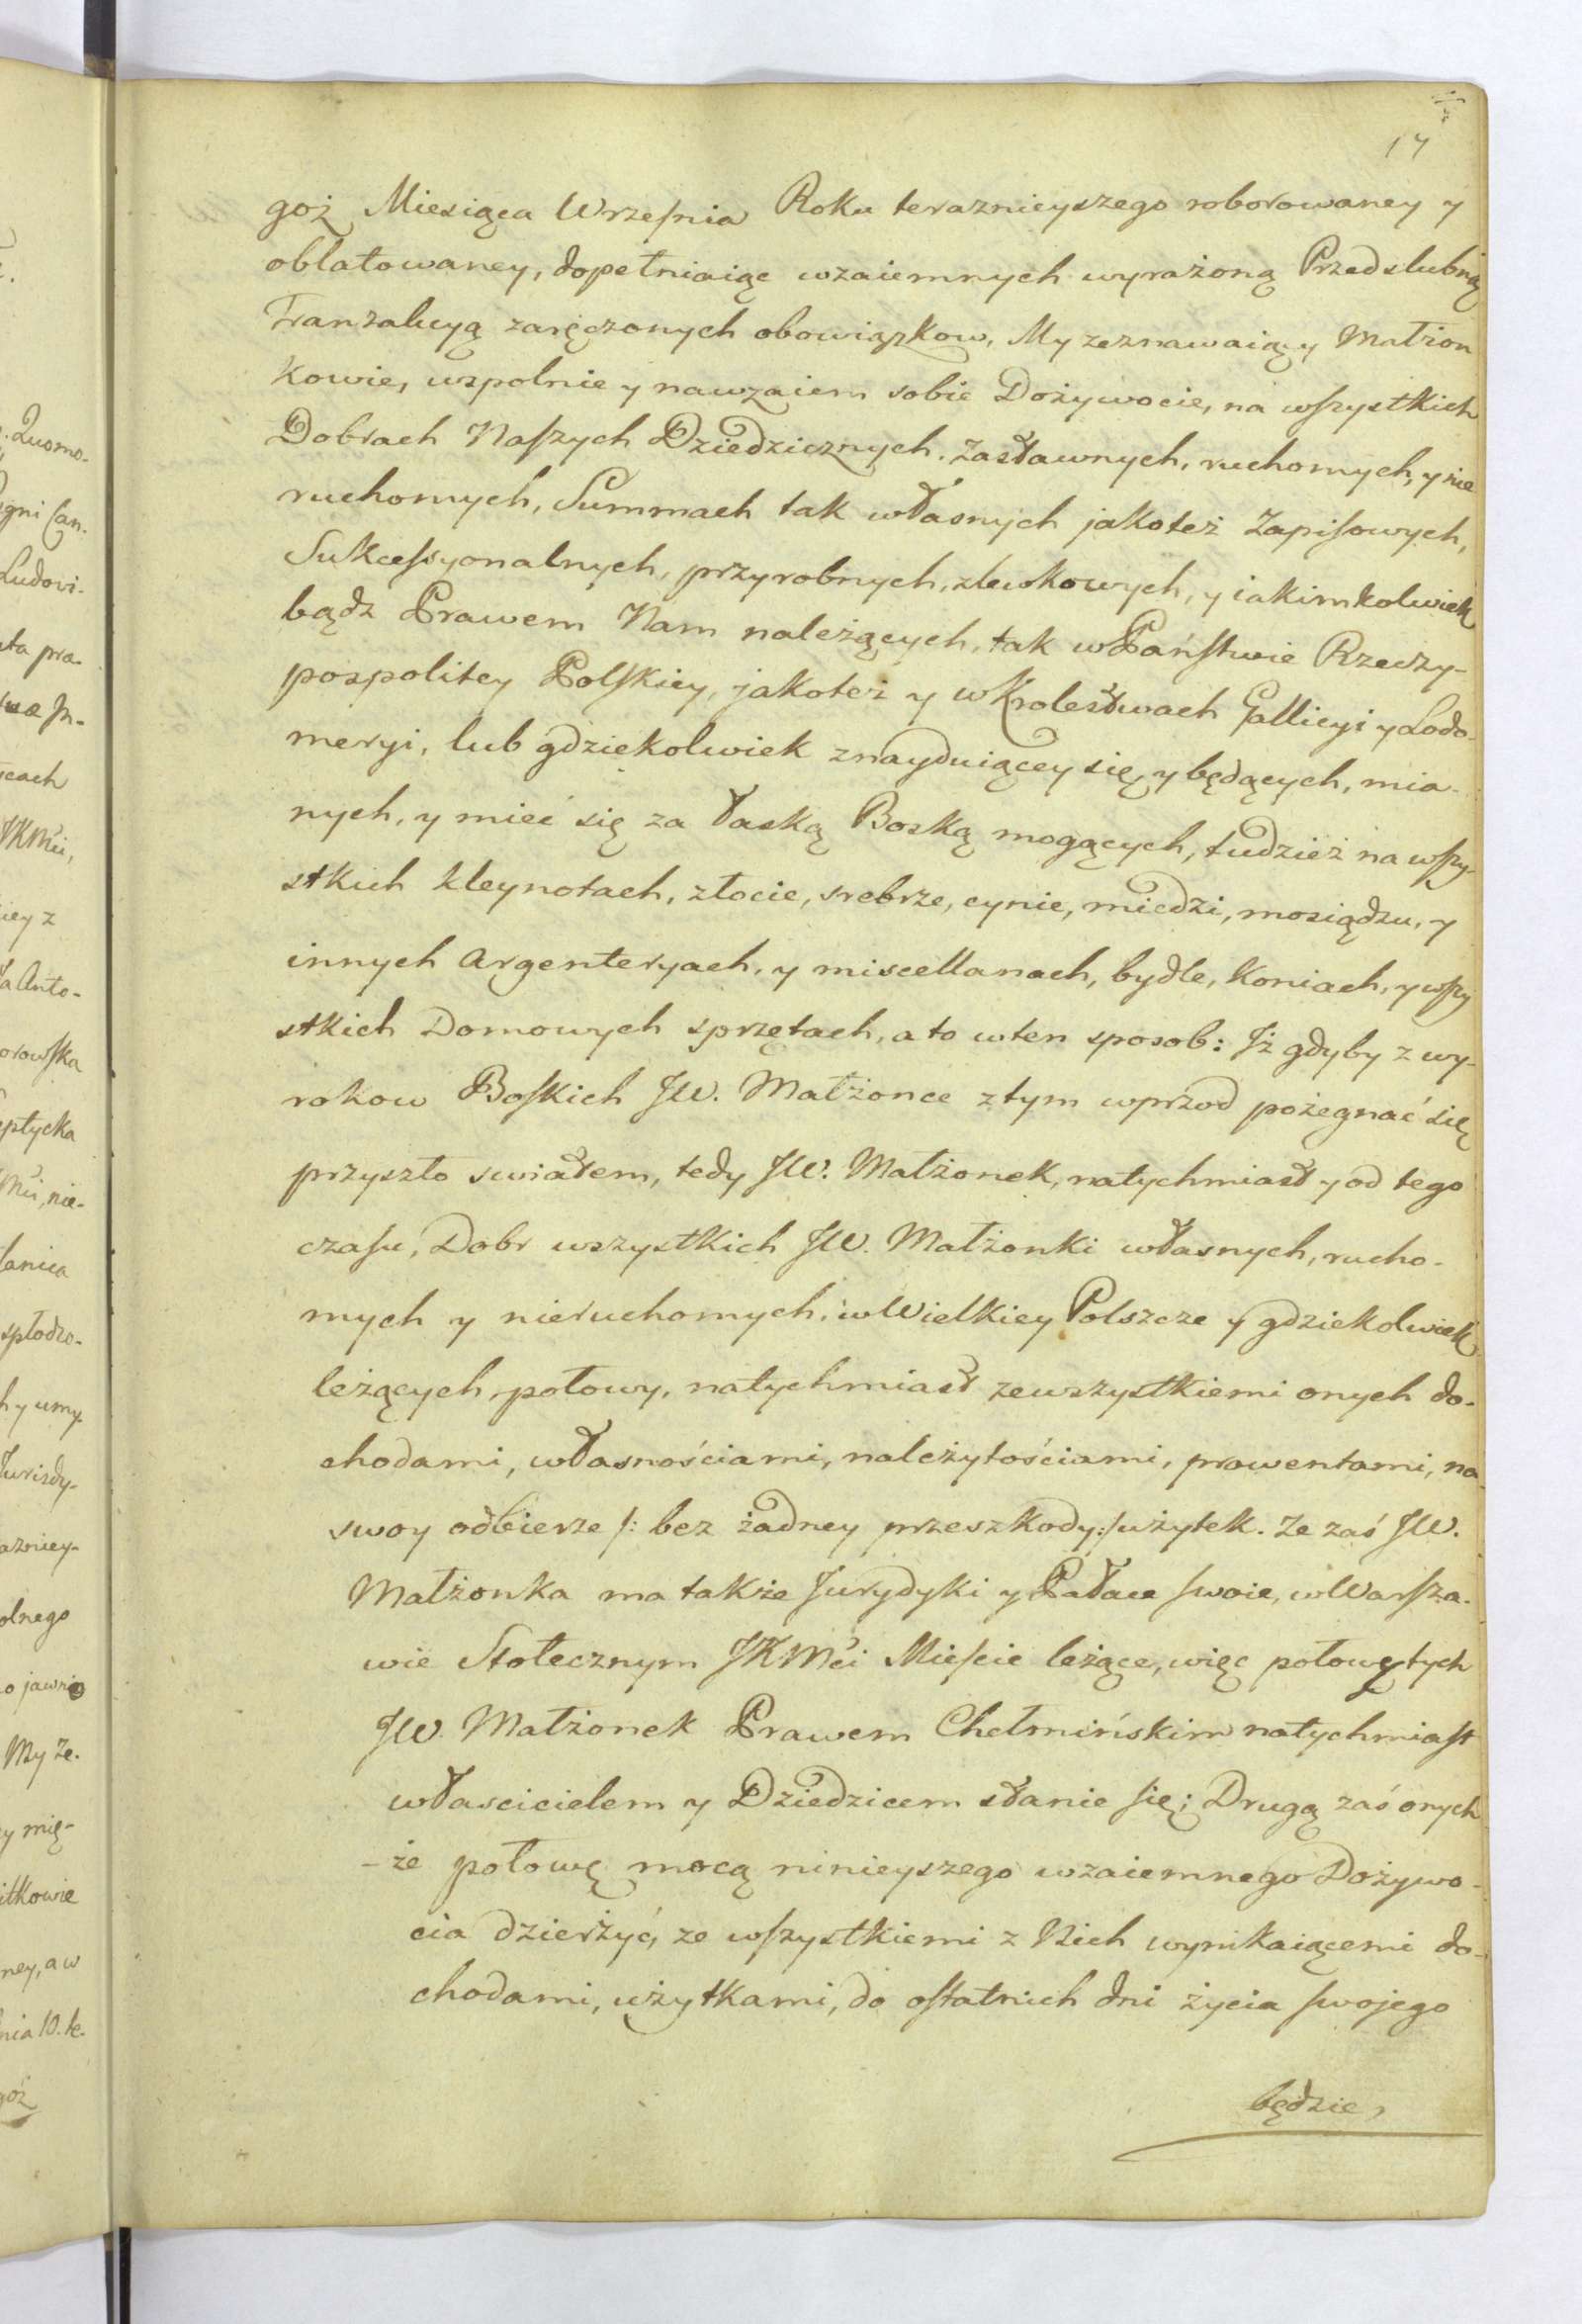 17
goż Miesiąca Wrzeſnia Roku teraznieyszego roborowaney y
oblatowaney, dopełniaiąc wzaiemnych wyrażoną Przedslubną
Tranzakcyą zaręczonych obowiązkow, My zeznawaiący Małżon
kowie, wspolnie y nawzaiem sobie Dożywocie, na wſzystkich
Dobrach Naſzych Dziedzicznych. Zastawnych, ruchomych, y nie
ruchomych, Summach tak własnych jakoteż Zapiſowych,
Sukceſsyonalnych, przyrobnych, zlewkowych, y iakimkolwiek
bądz Prawem Nam należących, tak w Pańſtwie Rzeczy-
pospolitey Polſkiey, jakoteż y w Krolestwach Gallicyi y Lodo-
meryi, lub gdziekolwiek znayduiącey się y będących, mia-
nych, y mieć się za łaską Boską mogących, tudzież na wſzy-
stkich kleynotach, złocie, srebrze, cynie, miedzi, mosiądzu, y
innych Argenteryach, y miscellanach, bydle, koniach, y wſzy
stkich Domowych sprzętach, a to w ten sposob: Iż gdyby z wy-
rokow Boſkich JW. Małżonce z tym wprzod pożegnać się
przyszło swiatem, tedy JW. Małżonek, natychmiast y od tego
czaſu, Dobr wszystkich JW. Małżonki własnych, rucho-
mych y nieruchomych, w Wielkiey Polszcze y gdziekolwiek
leżących połowy, natychmiast zewszystkiemi onych do-
chodami, własnościami, należytościami, prowentami, na
swoy odbierze /: bez żadney przeszkody :/ użytek. Ze zaś JW.
Małżonka ma także Jurydyki y Pałace ſwoie, w Warſza-
wie Stołecznym JKMći Mieſcie leżące, więc połowę tych
JW. Małżonek Prawem Chełmińskim natychmiaſt
własciecielem y Dziedzicem stanie ſię; Drugą zaś onych
-że połowę mocą ninieyszego wzaiemnego Dożywo-
cia dzierżyć, ze wſzystkiemi z Nich wynikaiącemi do-
chodami, użytkami, do oſtatnich dni życia ſwojego
będzie,